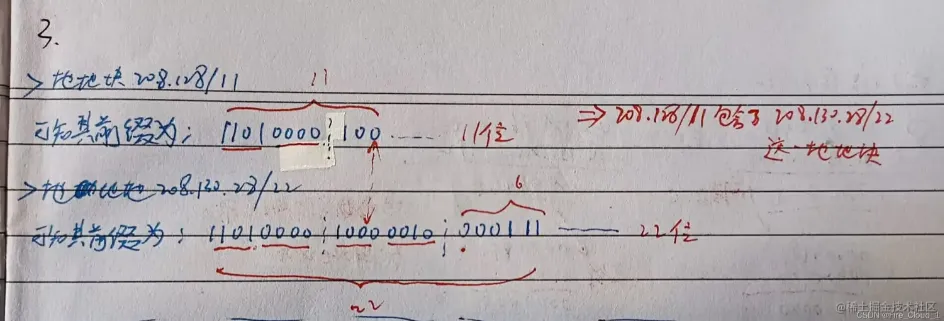 3.
> 地址块 208.128/11
11
可知其前缀为: 11010000 ; 100 …… 11位
⇒ 208.128/11 包含了 208.130.28/22
这一地址块
> 地址 208.130.28/22
6
可知其前缀为: 11010000 ; 10000010 ; 000111 —— 22位
22
@稀土掘金技术社区
CSDN @Fire_Cloud_1